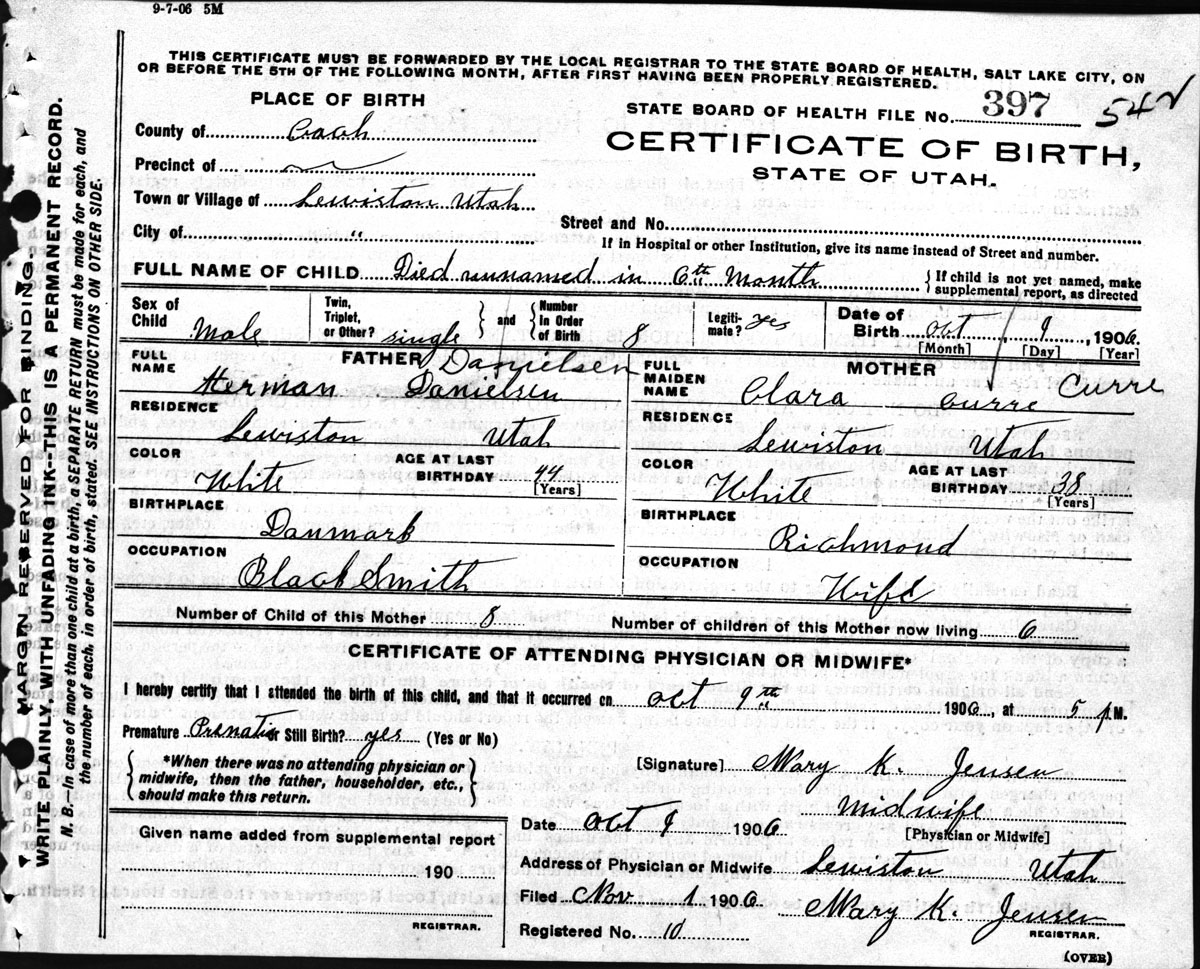 9-7-06 5M
THIS CERTIFICATE MUST BE FORWARDED BY THE LOCAL REGISTRAR TO THE STATE BOARD OF HEALTH, SALT LAKE CITY, ON
OR BEFORE THE 5TH OF THE FOLLOWING MONTH, AFTER FIRST HAVING BEEN PROPERLY REGISTERED.
PLACE OF BIRTH
STATE BOARD OF HEALTH FILE No. 397 542
County of Cach
CERTIFICATE OF BIRTH,
Precinct of
STATE OF UTAH.
Town or Village of Lewiston Utah
Street and No.
City of "
If in Hospital or other Institution, give its name instead of Street and number.
FULL NAME OF CHILD Died unnamed in 6th Month
{If child is not yet named, make
supplemental report, as directed
Sex of Child Male
Twin, Triplet, or Other? single } and { Number in Order of Birth 8
Legiti- mate? yes
Date of Birth Oct 9, 1906
[Month] [Day] [Year]
FATHER
FULL NAME Herman Danielsen Danielsen
RESIDENCE
Lewiston Utah
COLOR White
AGE AT LAST BIRTHDAY 44 [Years]
BIRTHPLACE
Danmark
OCCUPATION
Black Smith
MOTHER
FULL MAIDEN NAME Clara Curre Curre
RESIDENCE
Lewiston Utah
COLOR White
AGE AT LAST BIRTHDAY 38 [Years]
BIRTHPLACE
Richmond
OCCUPATION
Wife
Number of Child of this Mother 8 Number of children of this Mother now living 6
CERTIFICATE OF ATTENDING PHYSICIAN OR MIDWIFE*
I hereby certify that I attended the birth of this child, and that it occurred on Oct 9th 1906, at 5 P.M.
Premature or Still Birth? yes (Yes or No)
{*When there was no attending physician or
midwife, then the father, householder, etc.,
should make this return.}
[Signature] Mary K. Jensen
Midwife
[Physician or Midwife]
Given name added from supplemental report
190
REGISTRAR.
Date Oct 9 1906
Address of Physician or Midwife Lewiston Utah
Filed Nov. 1 1906 Mary K. Jensen
REGISTRAR.
Registered No. 10
(OVER)
MARGIN RESERVED FOR BINDING
WRITE PLAINLY, WITH UNFADING INK--THIS IS A PERMANENT RECORD.
N. B.—In case of more than one child at a birth, a SEPARATE RETURN must be made for each, and
the number of each, in order of birth, stated. SEE INSTRUCTIONS ON OTHER SIDE.